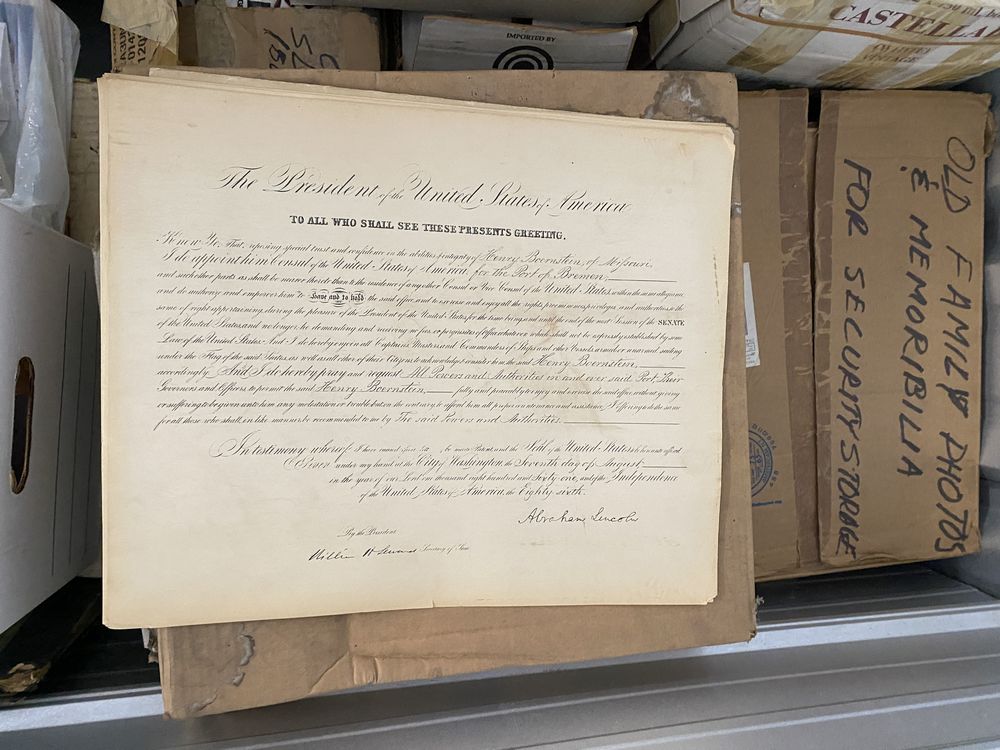 IMPORTED BY
CASTELLA
The President of the United States of America
TO ALL WHO SHALL SEE THESE PRESENTS GREETING.
Know Ye, That, reposing special trust and confidence in the abilities & integrity of Henry Boernstein, of Missouri,
I do appoint him Consul of the United States of America, for the Port of Bremen
and such other parts as shall be nearer thereto than to the residence of any other Consul or Vice Consul of the United States, within the same allegiance
and do authorize and empower him to have and to hold the said office, and to exercise and enjoy all the rights, preeminences, privileges, and authorities, to the
same of right appertaining, during the pleasure of the President of the United States for the time being, and until the end of the next Session of the SENATE
of the United States and no longer, he demanding and receiving no fees, or perquisites of Office whatever which shall not be expressly established by some
Law of the United States. And I do hereby enjoin all Captains, Masters and Commanders of Ships and other Vessels, armed or unarmed, sailing
under the Flag of the said States, as well as all other of their Citizens to acknowledge & consider him the said Henry Boernstein,
accordingly. And I do hereby pray and request All Powers and Authorities in and over said Port, Their
Governors and Officers, to permit the said Henry Boernstein, fully and peaceably to enjoy and exercise the said office, without giving
or suffering to be given unto him any molestation or trouble, but on the contrary to afford him all proper countenance and assistance, I offering to do the same
for all those who shall, in like manner, be recommended to me by The said Powers and Authorities.
In testimony whereof I have caused these Letters to be made Patent, and the Seal of the United States to be hereunto affixed
Given under my hand at the City of Washington, the Seventh day of August
in the year of our Lord one thousand eight hundred and Sixty one, and of the Independence
of the United States of America, the Eighty sixth.
Abraham Lincoln
By the President
William H Seward Secretary of State
OLD FAMILY PHOTOS
& MEMORIBILIA
FOR SECURITY STORAGE